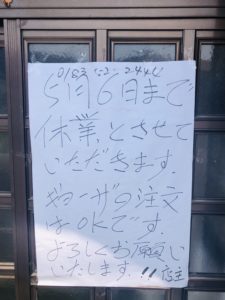 0183 52-2444
5月6日まで
休業とさせて
いただきます.
ギョーザの注文
はOKです.
よろしくお願い
いたします.!! 店主